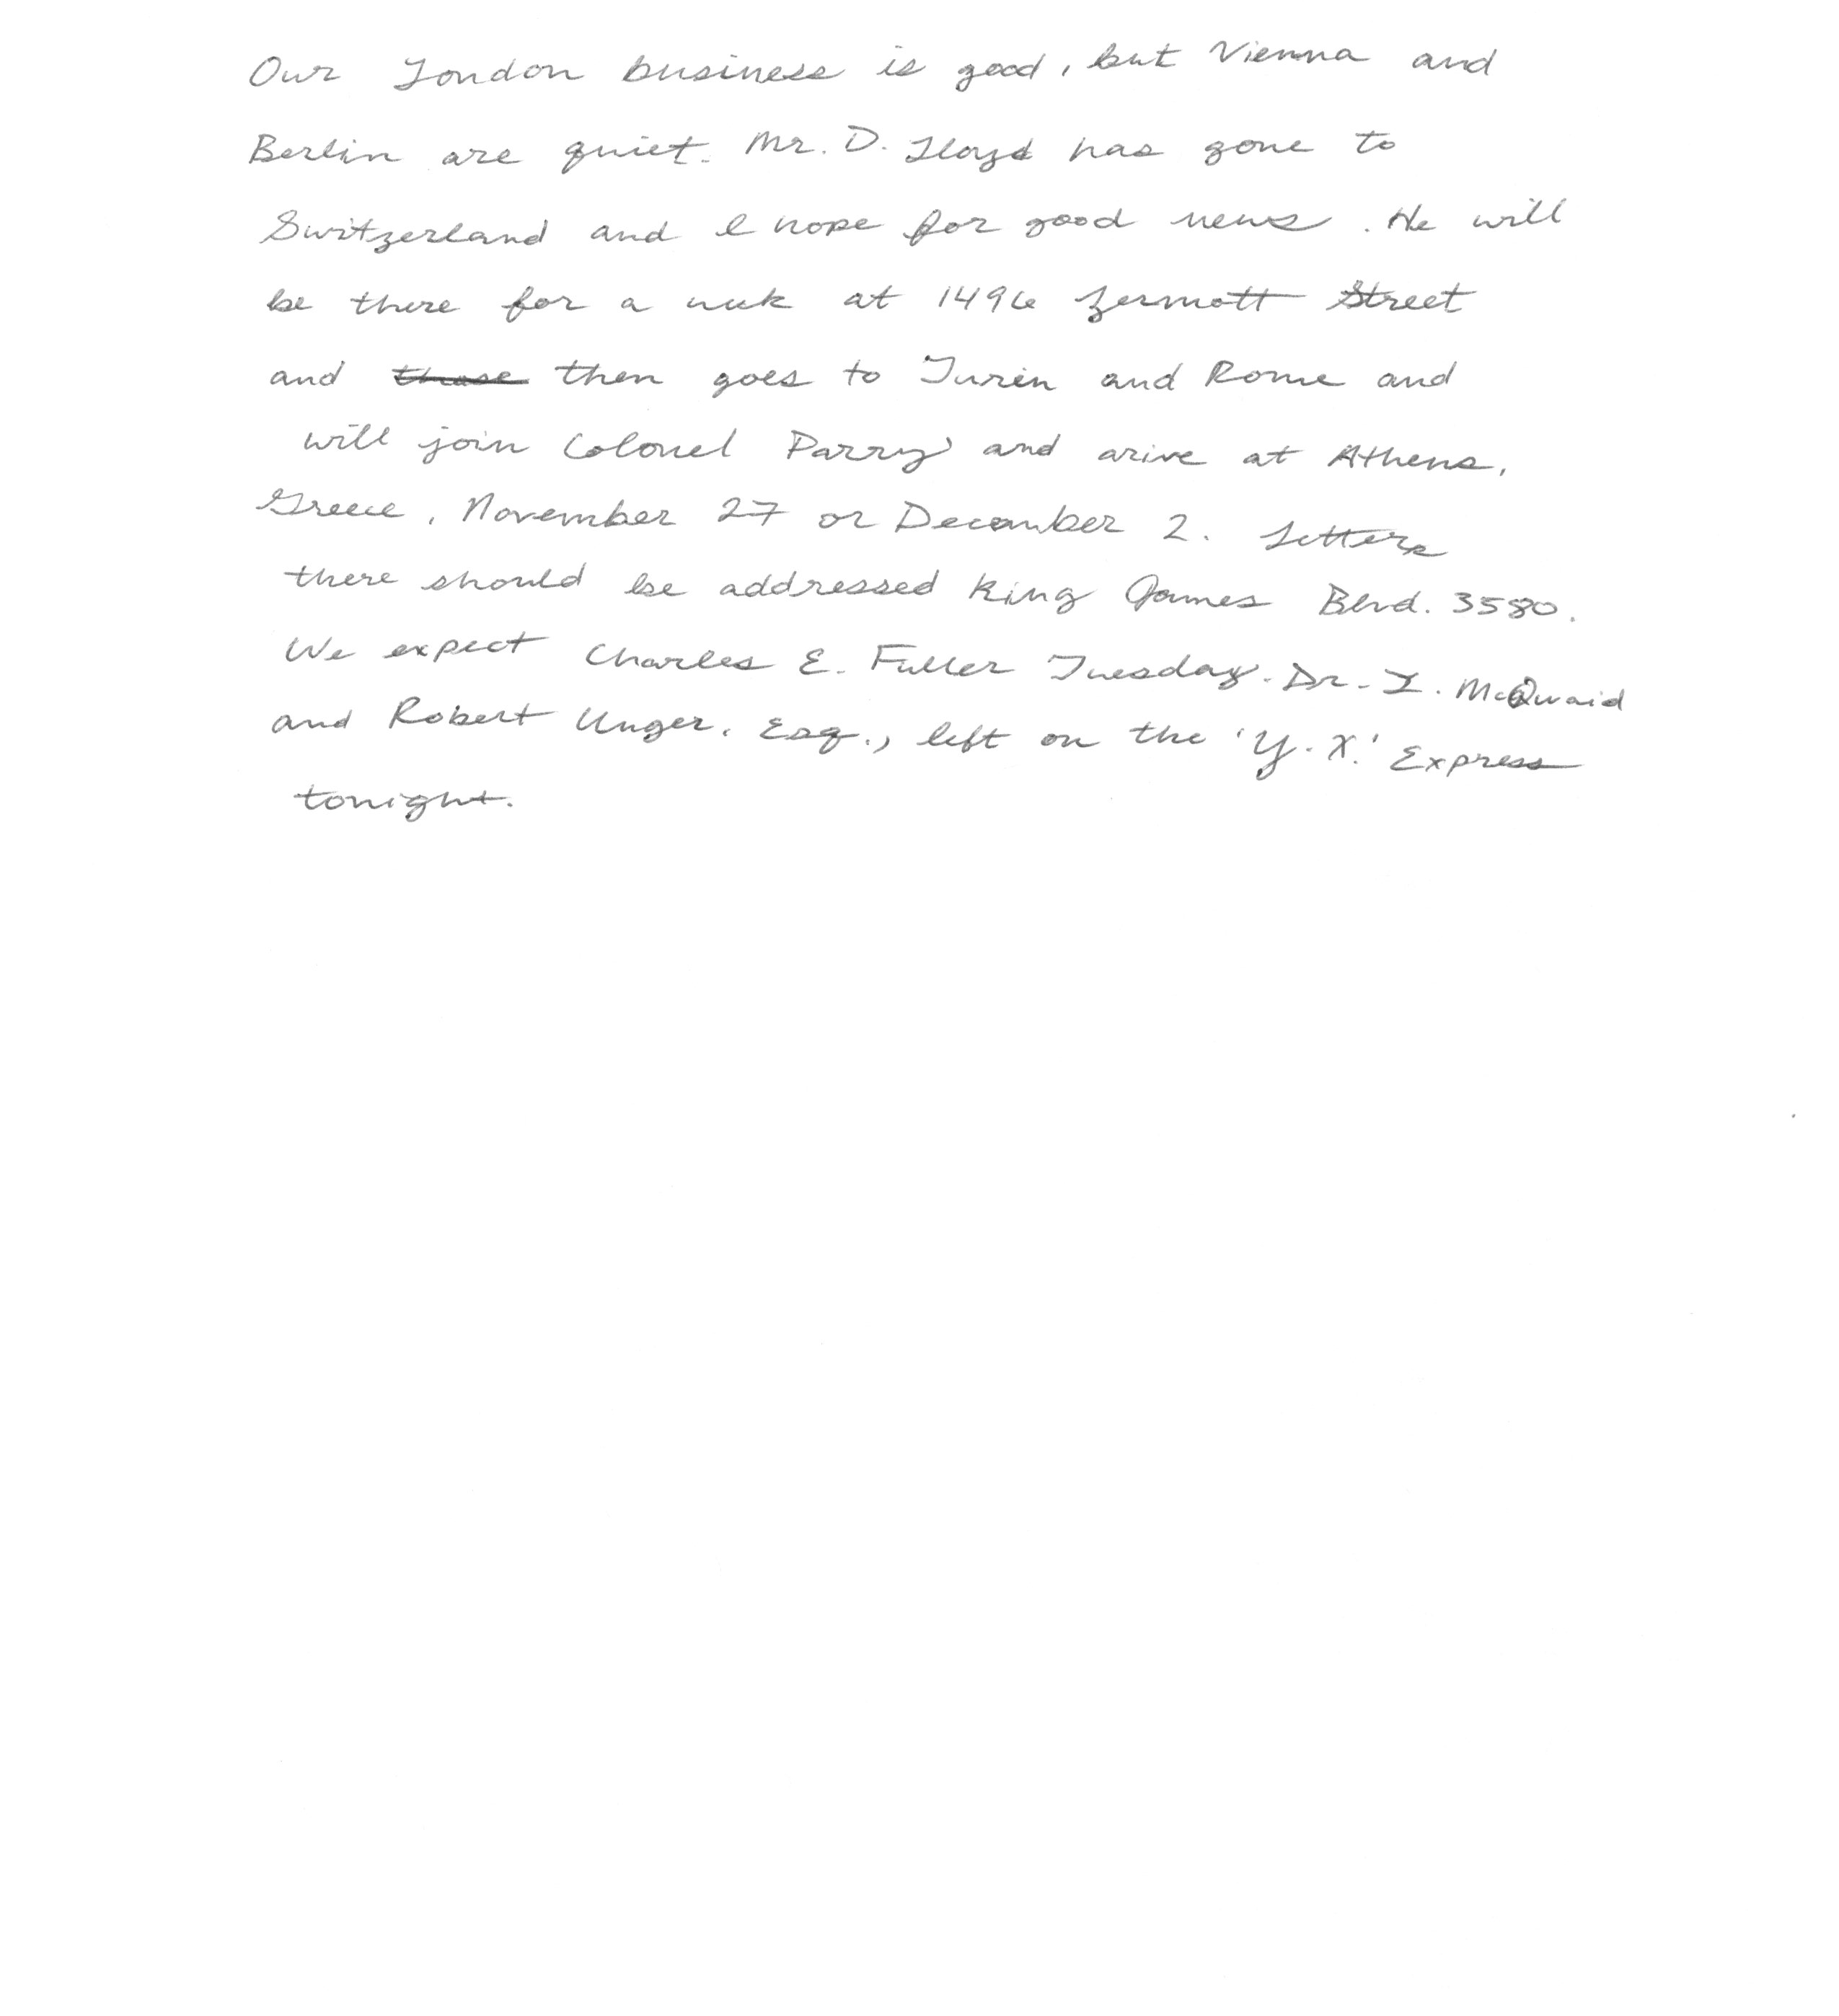 Our London business is good, but Vienna and
Berlin are quiet. Mr. D. Lloyd has gone to
Switzerland and I hope for good news. He will
be there for a week at 1496 Zermott Street
and those then goes to Turin and Rome and
will join Colonel Parry and arive at Athens,
Greece, November 27 or December 2. Letters
there should be addressed King James Blvd. 3580.
We expect Charles E. Fuller Tuesday. Dr. L. McQuaid
and Robert Unger, Esq., left on the 'Y. X.' Express
tonight.